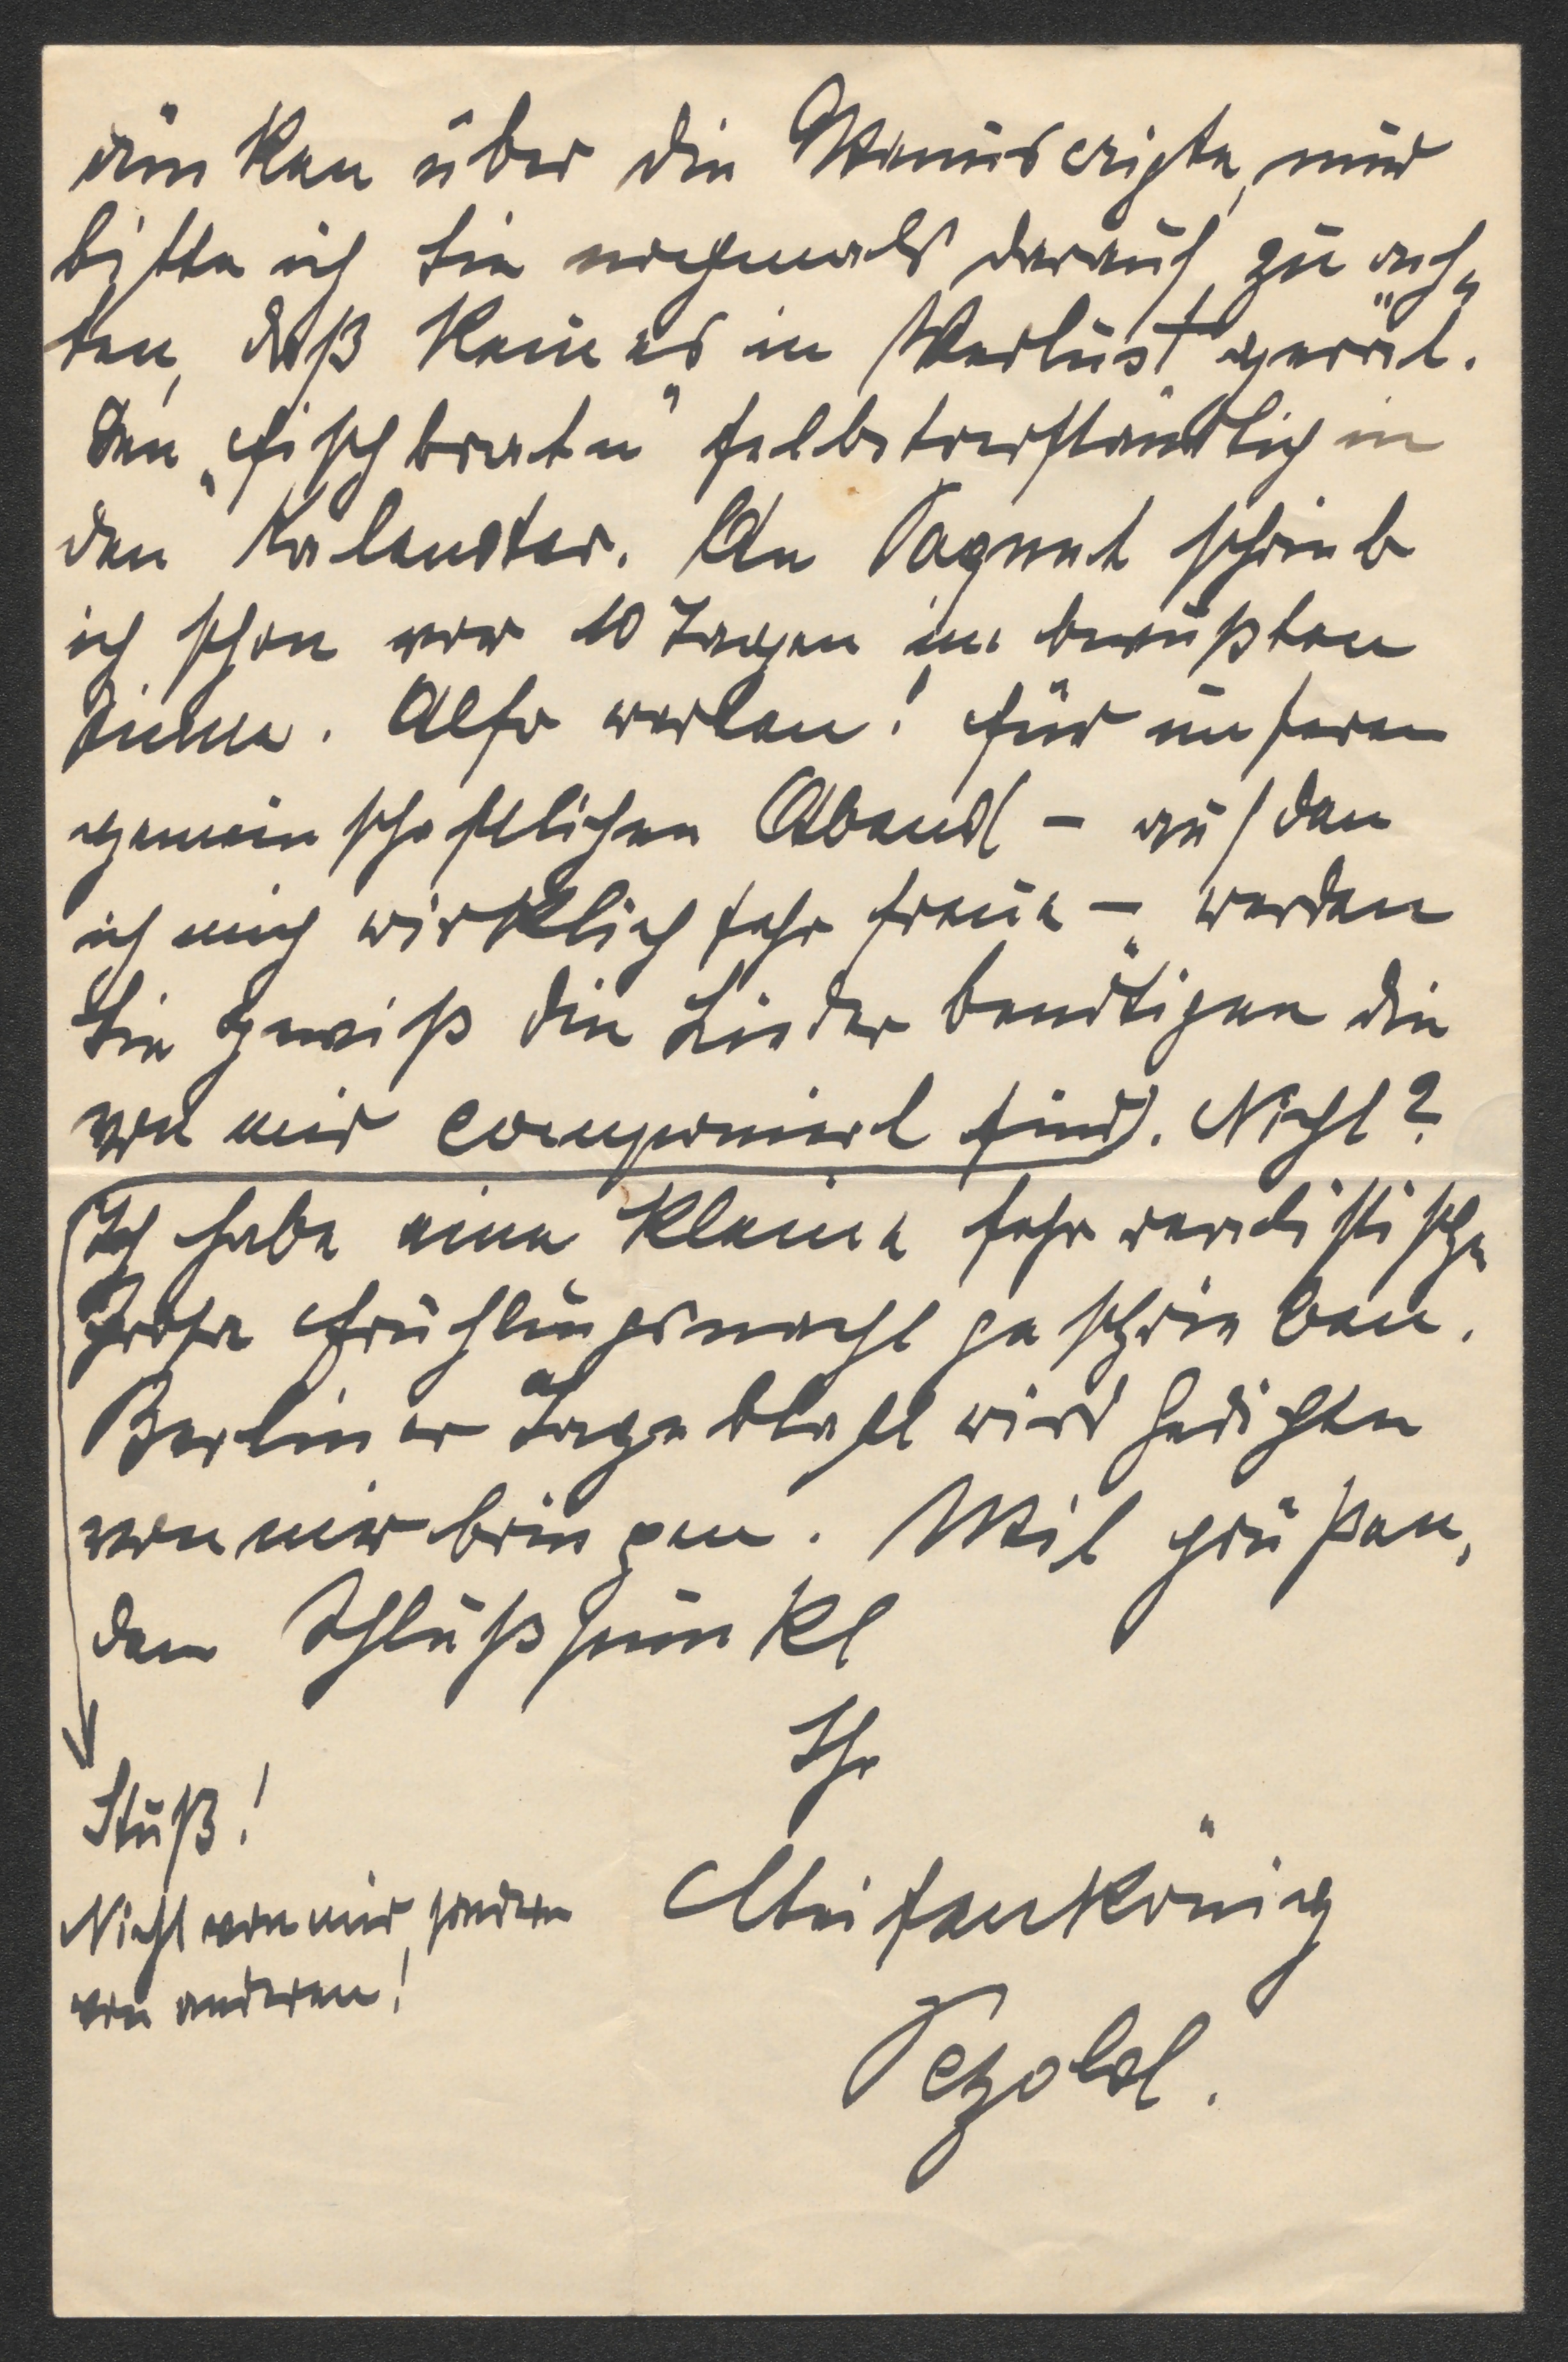 über die Manuscripte, nur
bitte ich Sie nochmals darauf zu ach-
ten, daß keines in Verlust gerät.
Den „Fischbraten" selbstverständlich in
den Kalender. An Paquet schrieb
ich schon vor 10 Tagen im bewußten
Sinne. Also verlen! Für unseren
gemeinschaftlichen Abend – auf den
ich mich wirklich sehr freue – werden
Sie gewiß die Lieder benötigen die
von mir componiert sind. Nicht?
Ich habe eine kleine sehr realistische
Prosa Frühlingsnacht geschrieben.
Berliner Tageblatt wird Gedichte
von mir bringen. Mit Grüßen,
dem Schlußpunkt
Ihr
Meisenkönig
Petzold.
Stuß!
Nicht von mir, sondern
von anderen!